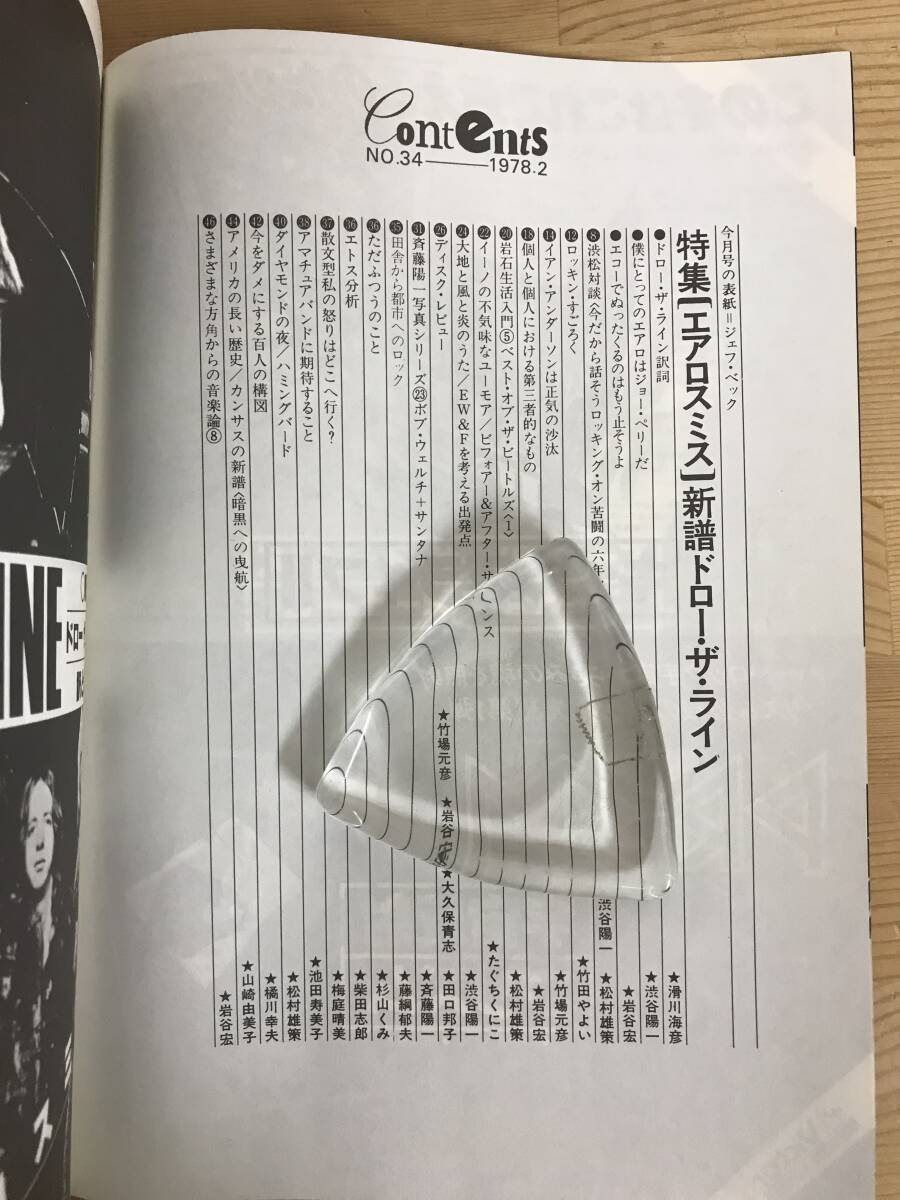 Contents
NO.34 1978.2
今月号の表紙=ジェフ・ベック
特集[エアロスミス]新譜ドロー・ザ・ライン
●ドロー・ザ・ライン訳詞 ★滑川海彦
●僕にとってのエアロはジョー・ペリーだ ★渋谷陽一
●エコーでぬったくるのはもう止そうよ ★岩谷宏
❽渋松対談〈今だから話そうロッキング・オン苦闘の六年 渋谷陽一 ★松村雄策
⓬ロッキン・すごろく ★竹田やよい
⓮イアン・アンダーソンは正気の沙汰 ★竹場元彦
⓲個人と個人における第三者的なもの ★岩谷宏
⓴岩石生活入門⑤ベスト・オブ・ザ・ビートルズ〈1〉 ★松村雄策
㉒イーノの不気味なユーモア/ビフォアー&アフター・サ ンス ★たぐちくにこ
㉔大地と風と炎のうた/EW&Fを考える出発点 ★渋谷陽一
㉖ディスク・レビュー ★竹場元彦 ★岩谷宏 ★大久保青志 ★田口邦子
㉛斉藤陽一写真シリーズ㉓ボブ・ウェルチ+サンタナ ★斉藤陽一
㉟田舎から都市へのロック ★藤綱郁夫
㊱ただふつうのこと ★杉山くみ
㊱エトス分析 ★柴田志郎
㊲散文型私の怒りはどこへ行く? ★梅庭晴美
㊳アマチュアバンドに期待すること ★池田寿美子
㊵ダイヤモンドの夜/ハミングバード ★松村雄策
㊷今をダメにする百人の構図 ★橘川幸夫
㊹アメリカの長い歴史/カンサスの新譜〈暗黒への曳航〉 ★山崎由美子
㊻さまざまな方角からの音楽論⑧ ★岩谷宏
INE
ドロー
ス